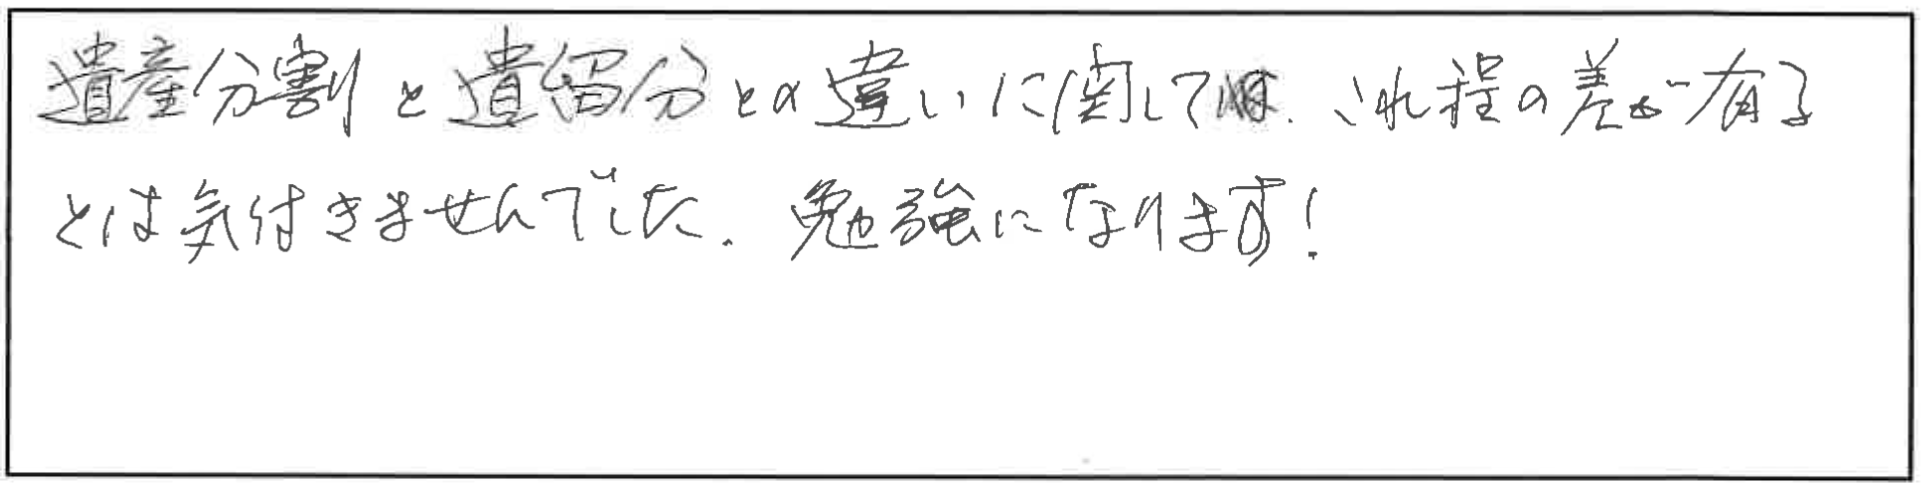 遺産分割と遺留分との違いに関しては、これ程の差が有る
とは気付きませんでした。勉強になります!